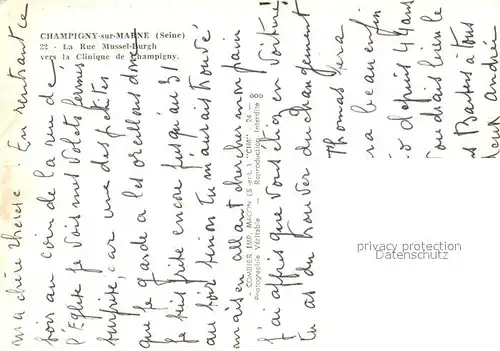 CHAMPIGNY-sur-MARNE (Seine)
22 - La Rue Mussel-Burgh
vers la Clinique de Champigny.
Ma chère Thérèse ! En rentrant ce
soir au coin de la rue de
l'Eglise je vois mes volets fermés
surprise, car une des petites
que je garde a les oreillons donc
je suis prise encore jusqu'au 3
au soir sinon tu m'aurais trouvé
mais en allant chercher mon pain
J'ai appris que vous étiez en voiture
tu as du trouver du changement
Thomas sera
ra beau enfin
depuis 44 ans
voudrais bien le
Baisers à tous
Andrée
COMBIER IMP. MACON (S.-et-L.) "CIM" - 24 - 000
Photographie Véritable - Reproduction Interdite
privacy protection
Datenschutz